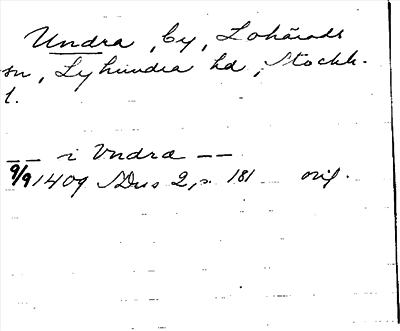 Undra, by, Lohärads
sn, Lyhundra hd, Stockh.
l.
-- i Vndra --
9/9 1409 SDns 2, s. 181 orig.